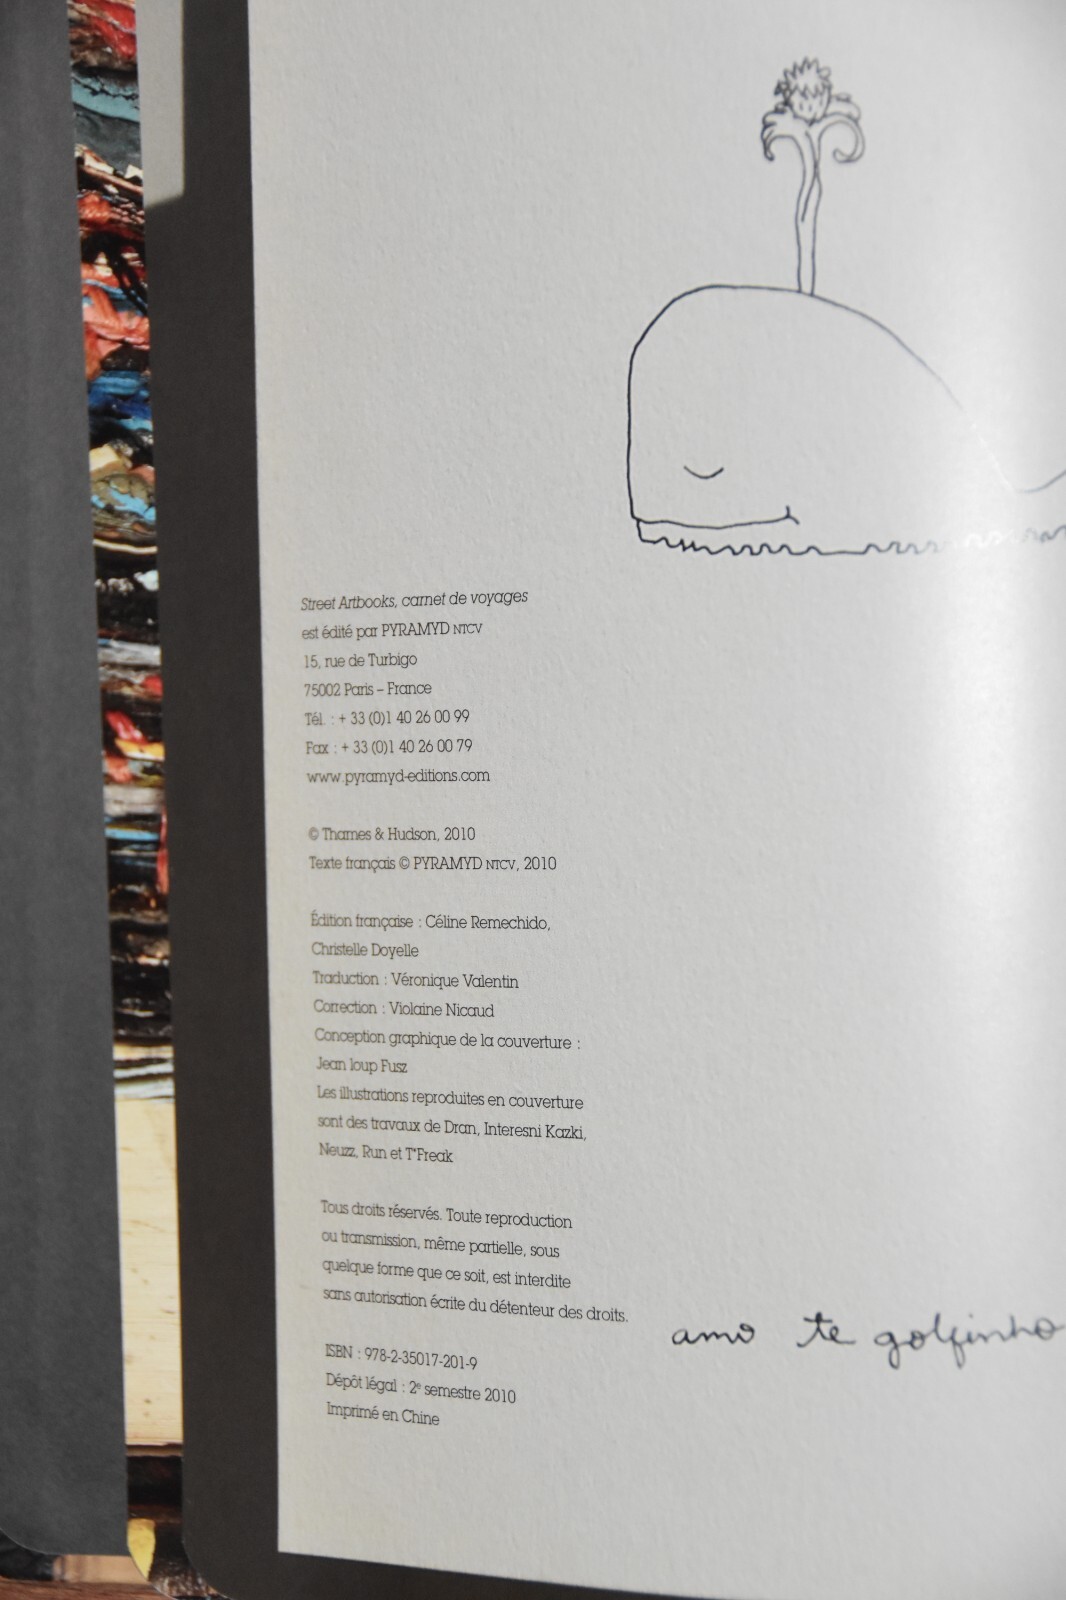 Street Artbooks, carnet de voyages
est édité par PYRAMYD NTCV
15, rue de Turbigo
75002 Paris – France
Tél. : + 33 (0)1 40 26 00 99
Fax : + 33 (0)1 40 26 00 79
www.pyramyd-editions.com
© Thames & Hudson, 2010
Texte français © PYRAMYD NTCV, 2010
Édition française : Céline Remechido,
Christelle Doyelle
Traduction : Véronique Valentin
Correction : Violaine Nicaud
Conception graphique de la couverture :
Jean loup Fusz
Les illustrations reproduites en couverture
sont des travaux de Dran, Interesni Kazki,
Neuzz, Run et T*Freak
Tous droits réservés. Toute reproduction
ou transmission, même partielle, sous
quelque forme que ce soit, est interdite
sans autorisation écrite du détenteur des droits.
amo te golfinho
ISBN : 978-2-35017-201-9
Dépôt légal : 2e semestre 2010
Imprimé en Chine